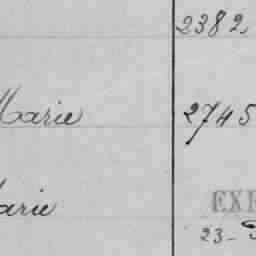 2382
Marie 2745
Marie
23-